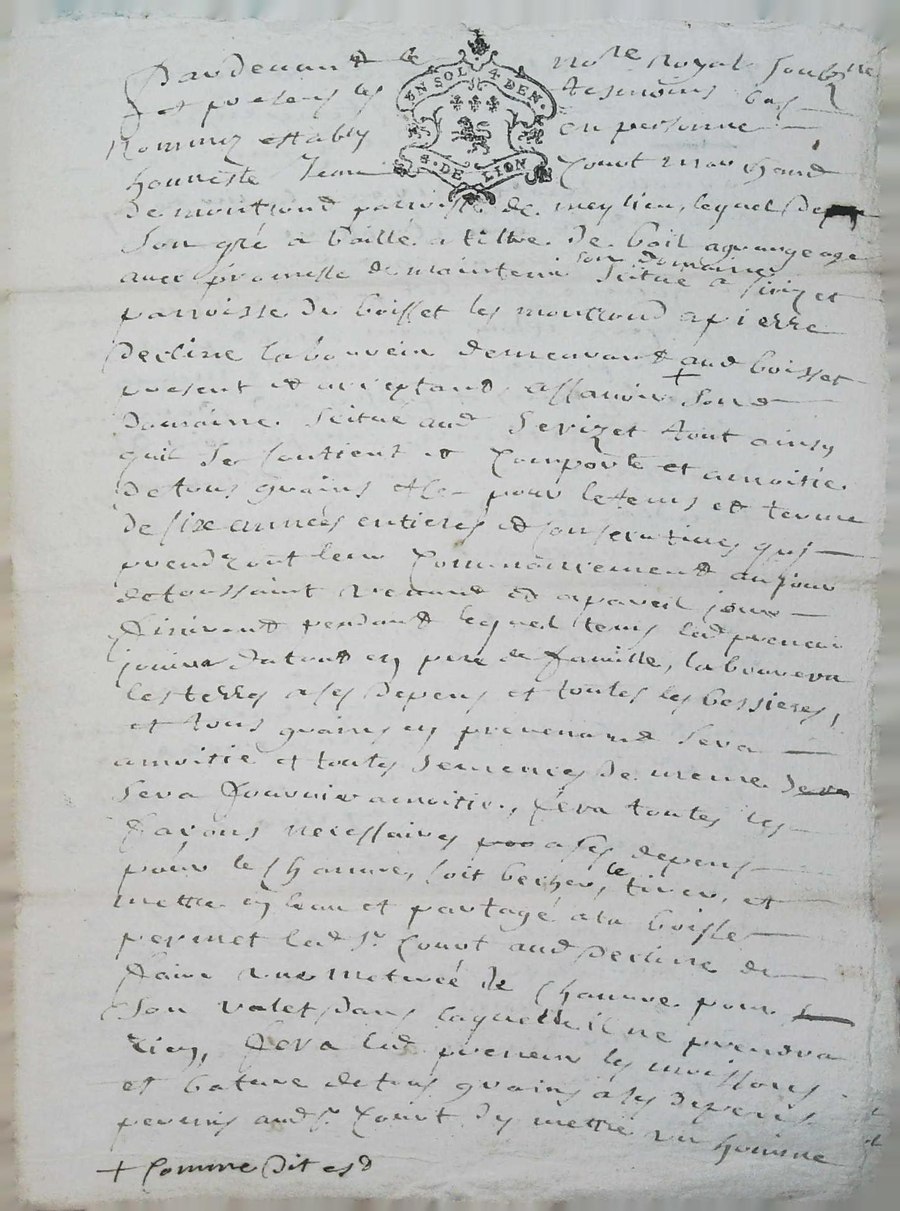 Pardevant le no.re Royal soubz.ne
et presens les tesmoins bas
Nommez estably en personne
EN SOL 4 DEN.
G. DE LION
honneste Jean Court marchand
de montrond parroisse de meylieu, lequel de
son gré a baillé a tiltre de bail a grangeage
avec promesse de maintenir son domaine scitue a sirizet
parroisse de boisset les montrond a pierre
Decline laboureur demeurant aud boisset
present et acceptant assavoir sond +
Domaine scitue aud Serizet tout ainsy
quil se contient et comporte et a moitié
de tous grains et ce pour le tems et terme
de six années entieres et consecutives qui
prendront leur commancement au jour
de toussaint venant et a pareil jour
finiront pendant lequel tems led preneur
jouira du tout en pere de famille, labourera
les terres a ses depens et toutes les bessieres,
et tous grains en provenand sera
a moitie et toutes semences de meme
sera fournir a moitie, fera toutes les
façons necessaires a ses depens
pour le chanvre, soit becher, le tirer, et
mettre en leau et partagé a la boisle
permet led sr Court aud Decline de
faire une meturée de chanvre pour
son valet dans laquelle il ne prendra
rien, fera led preneur les moissons
et bature de tous grains a ses depens
permis aud sr Court dy mettre un homme
+ comme dit est